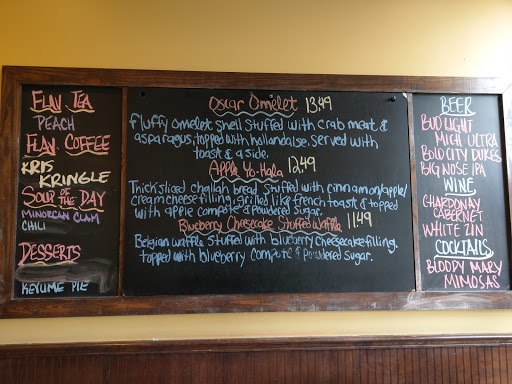 FLAV TEA
PEACH
FLAV. COFFEE
KRIS
KRINGLE
SOUP OF THE DAY
MINORCAN CLAM
CHILI
DESSERTS
KEYLIME PIE
Oscar Omelet 13.49
Fluffy omelet shell stuffed with crab meat &
asparagus, topped with hollandaise. Served with
toast & a side.
Apple Yo-Hala 12.49
Thick sliced challah bread stuffed with cinnamon/apple/
cream cheese filling, grilled like french toast & topped
with apple compote & powdered sugar.
Blueberry Cheesecake Stuffed Waffle 11.49
Belgian waffle stuffed with blueberry cheesecake filling.
topped with blueberry compote & powdered sugar.
BEER
BUD LIGHT
MICH ULTRA
BOLD CITY DUKES
BIG NOSE IPA
WINE
CHARDONAY
CABERNET
WHITE ZIN
COCKTAILS
BLOODY MARY
MIMOSAS